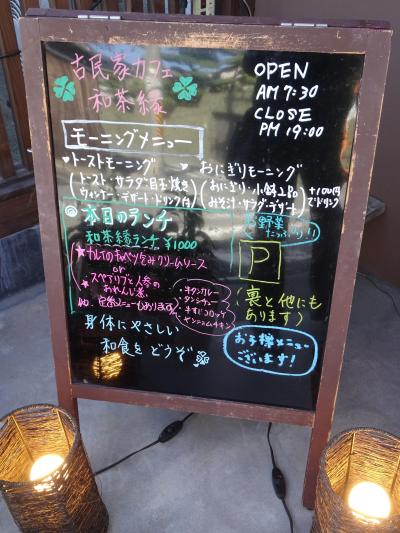 古民家カフェ
和茶縁
OPEN
AM 7:30
CLOSE
PM 19:00
モーニングメニュー
♥トーストモーニング
(トースト・サラダ・目玉焼き
ウィンナー・デザート・ドリンク付)
♥おにぎりモーニング
(おにぎり・小鉢2P
みそ汁・サラダ・デザート)
+100円
でドリンク
◎本日のランチ
和茶縁ランチ ¥1000
お野菜
たっぷり
★カレイのキャベツ包みクリームソース
or
★スペアリブと人参の
オレンジ煮
定番メニューもあります
・牛タンカレー
・タンシチュー
・牛すじコロッケ
・ヤンニョムチキン
P
(裏と他にも
あります)
身体にやさしい
和食をどうぞ
お子様メニュー
ございます!